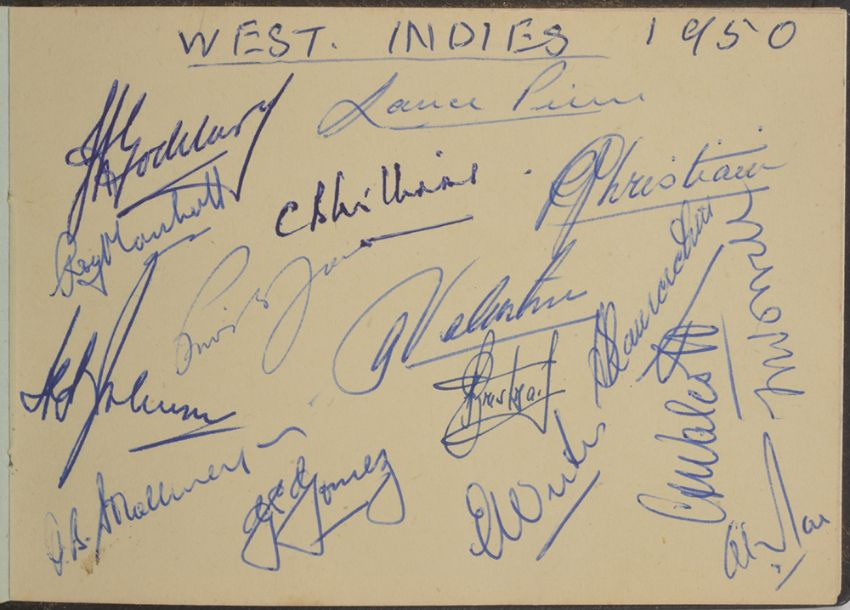 WEST. INDIES 1950
J D Goddard
Lance Pierre
Roy Marshall
C B Williams
R J Christiani
Prior Jones
A Valentine
H H Johnson
K Trestrail
S Ramadhin
F M Worrell
J. B. Stollmeyer
G E Gomez
E Weekes
C L Walcott